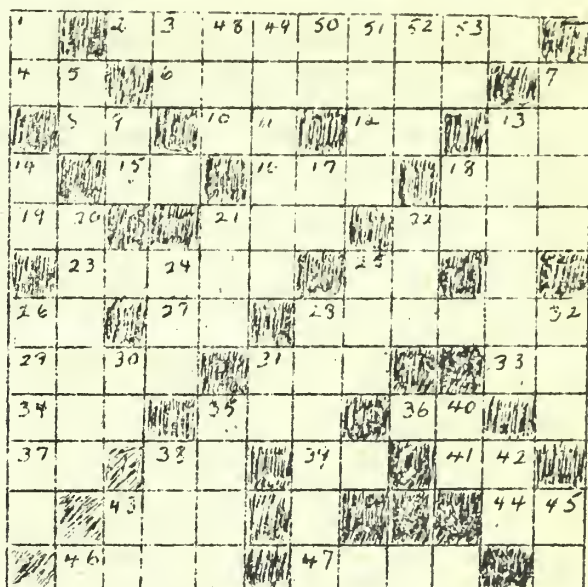 1 2 3 48 49 50 51 52 53
4 5 6 7
8 9 10 11 12 13
14 15 16 17 18
19 20 21 22
23 24 25
26 27 28 32
29 30 31 33
34 35 36 40
37 38 39 41 42
43 44 45
46 47